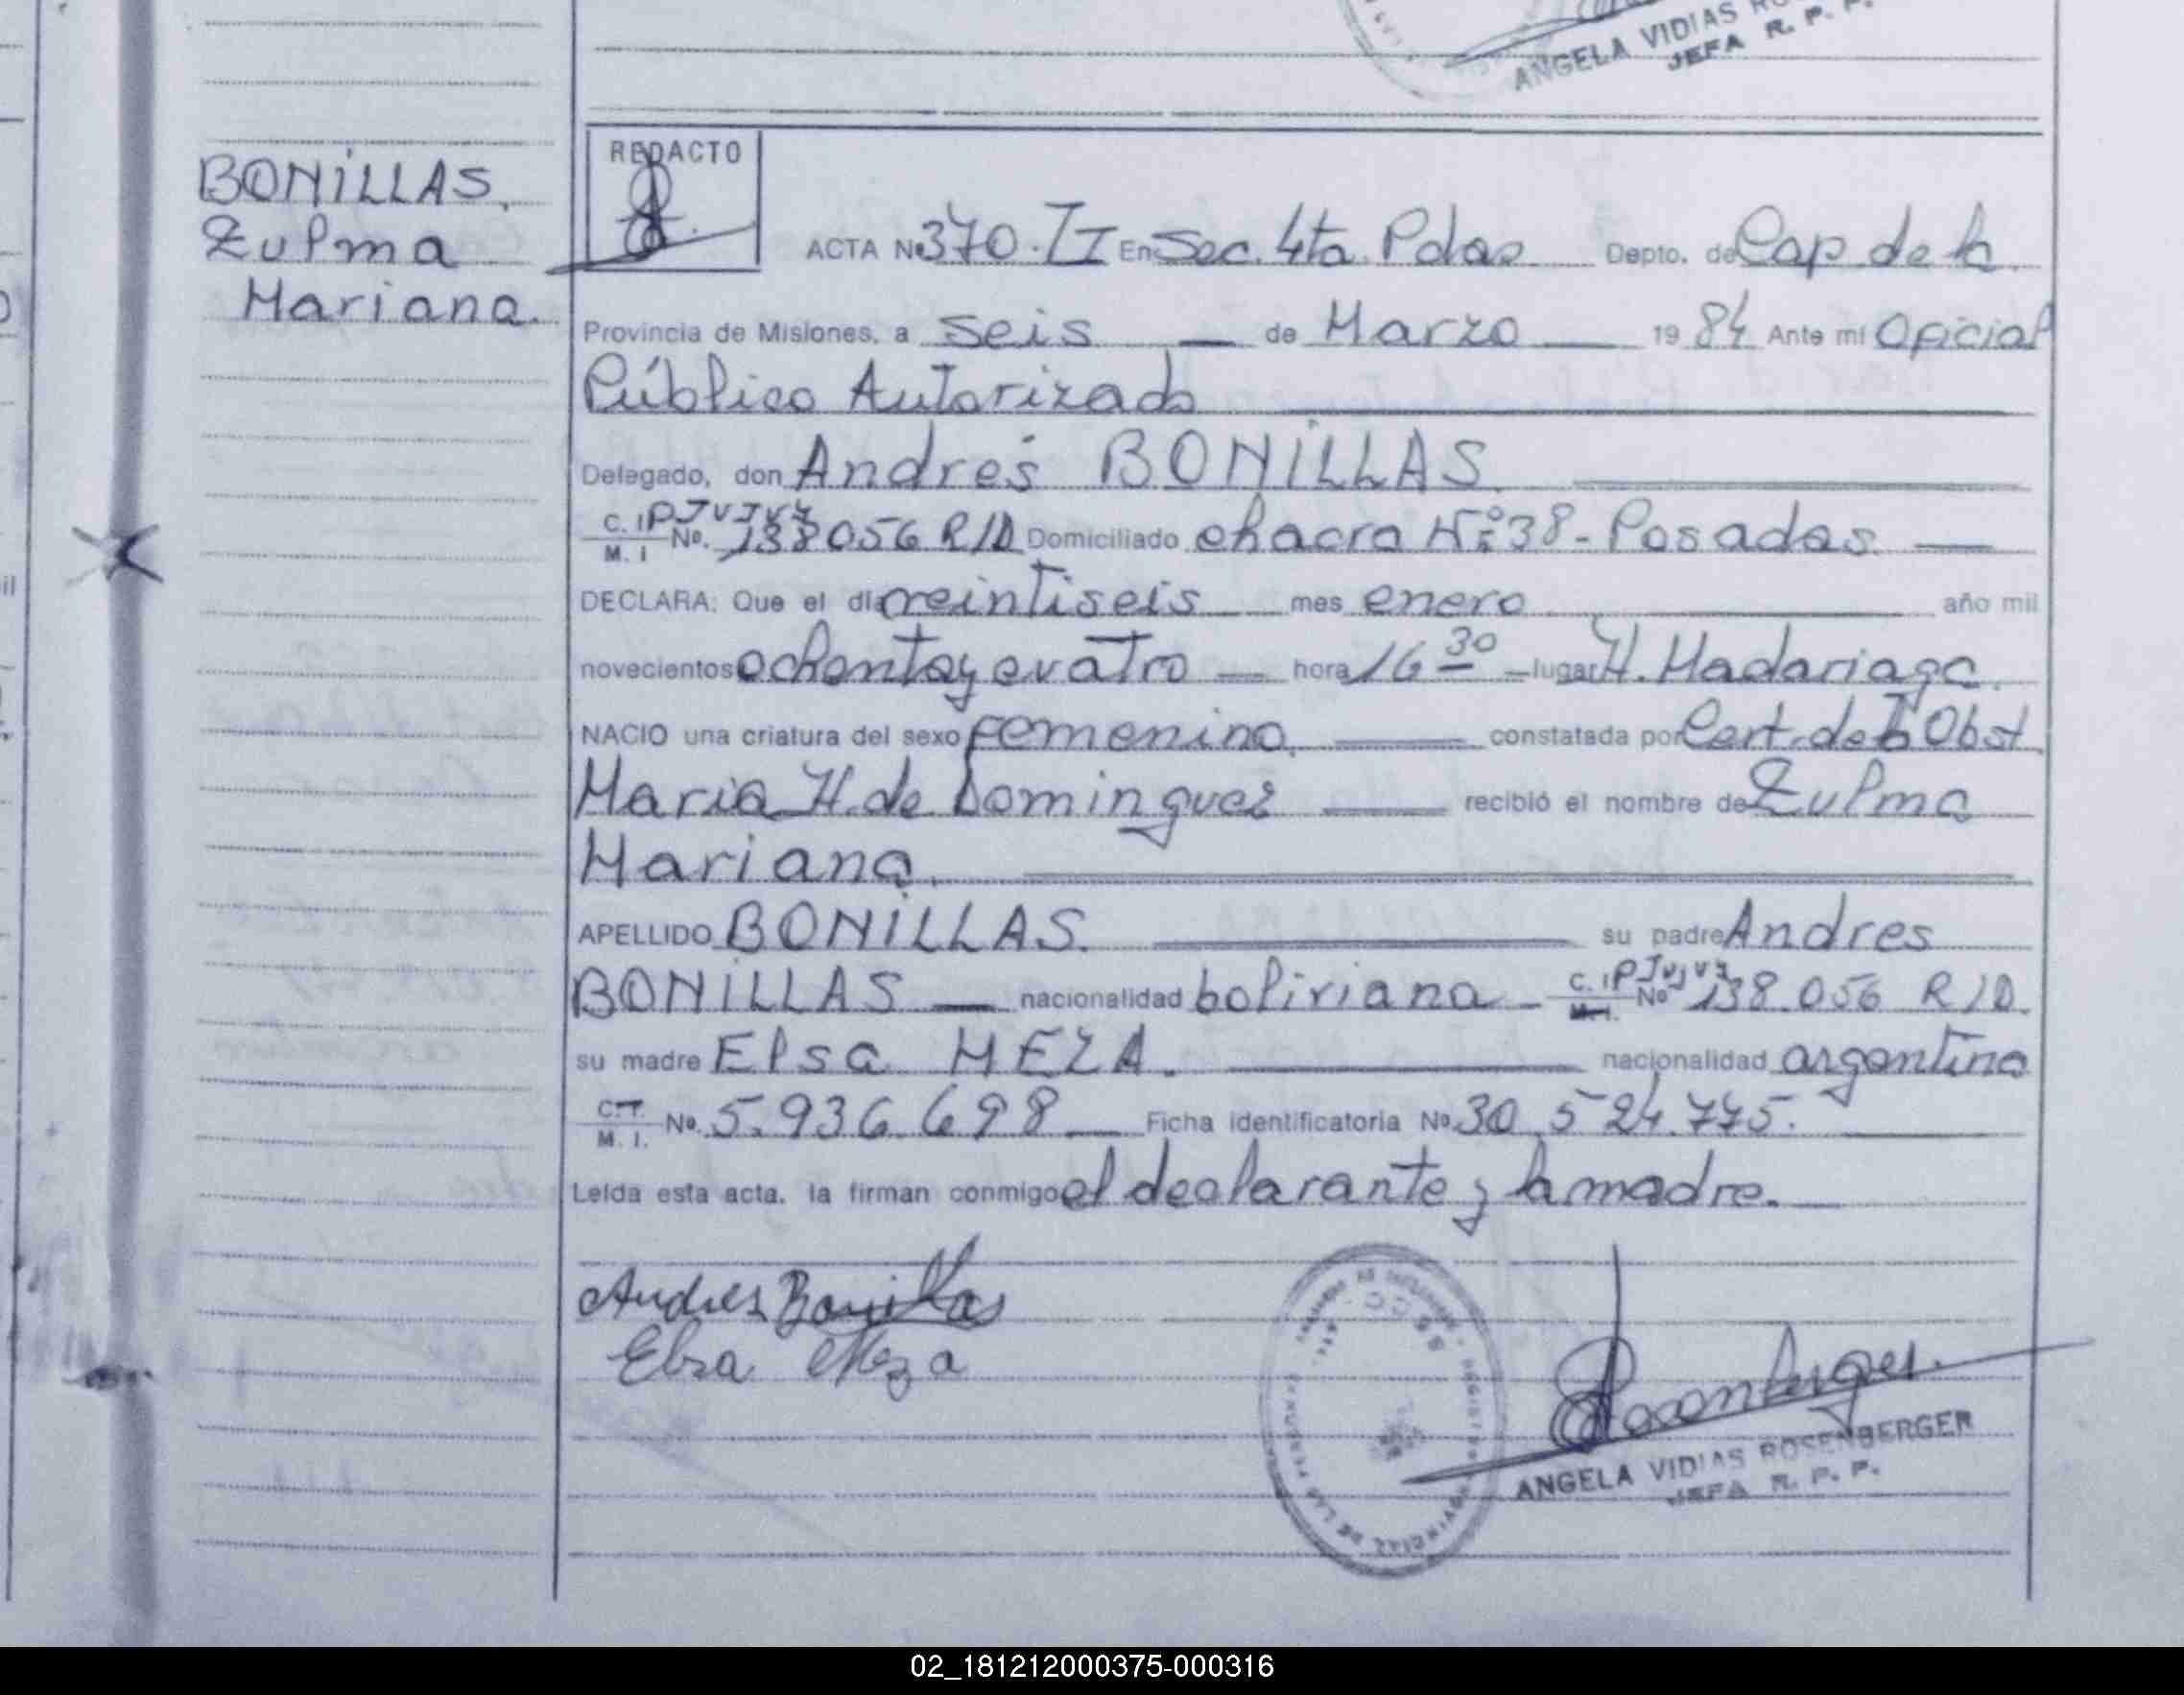 ANGELA VIDIAS
JEFA R. P. P.
BONILLAS.
Zulma
Mariana.
REDACTO
ACTA No 370.II En Sec. 4ta. Pdas Depto. de Cap de la
Provincia de Misiones, a seis de Marzo 1984 Ante mí Oficial
Público Autorizado
Delegado, don Andrés BONILLAS.
C. I. P JUJUY
M. I No. 138056 R/D Domiciliado chacra Nº 38 - Posadas
DECLARA: Que el día veintiseis mes enero año mil
novecientos ochenta y cuatro hora 16 30 lugar H. Madariaga.
NACIO una criatura del sexo femenino. constatada por Cert. de la Obst
Maria H. de Dominguez recibió el nombre de Zulma
Mariana.
APELLIDO BONILLAS. su padre Andres
BONILLAS nacionalidad boliviana C. I. P Jujuy M. I. No 138.056 R/D.
su madre Elsa MEZA. nacionalidad argentina
C. I. M. I. No. 5.936.698 Ficha identificatoria No 30.524.775.
Leída esta acta, la firman conmigo el declarante y la madre.
Andres Bonillas
Elsa Meza
Rosenberger.
ANGELA VIDIAS ROSENBERGER
JEFA R. P. P.
02_181212000375-000316